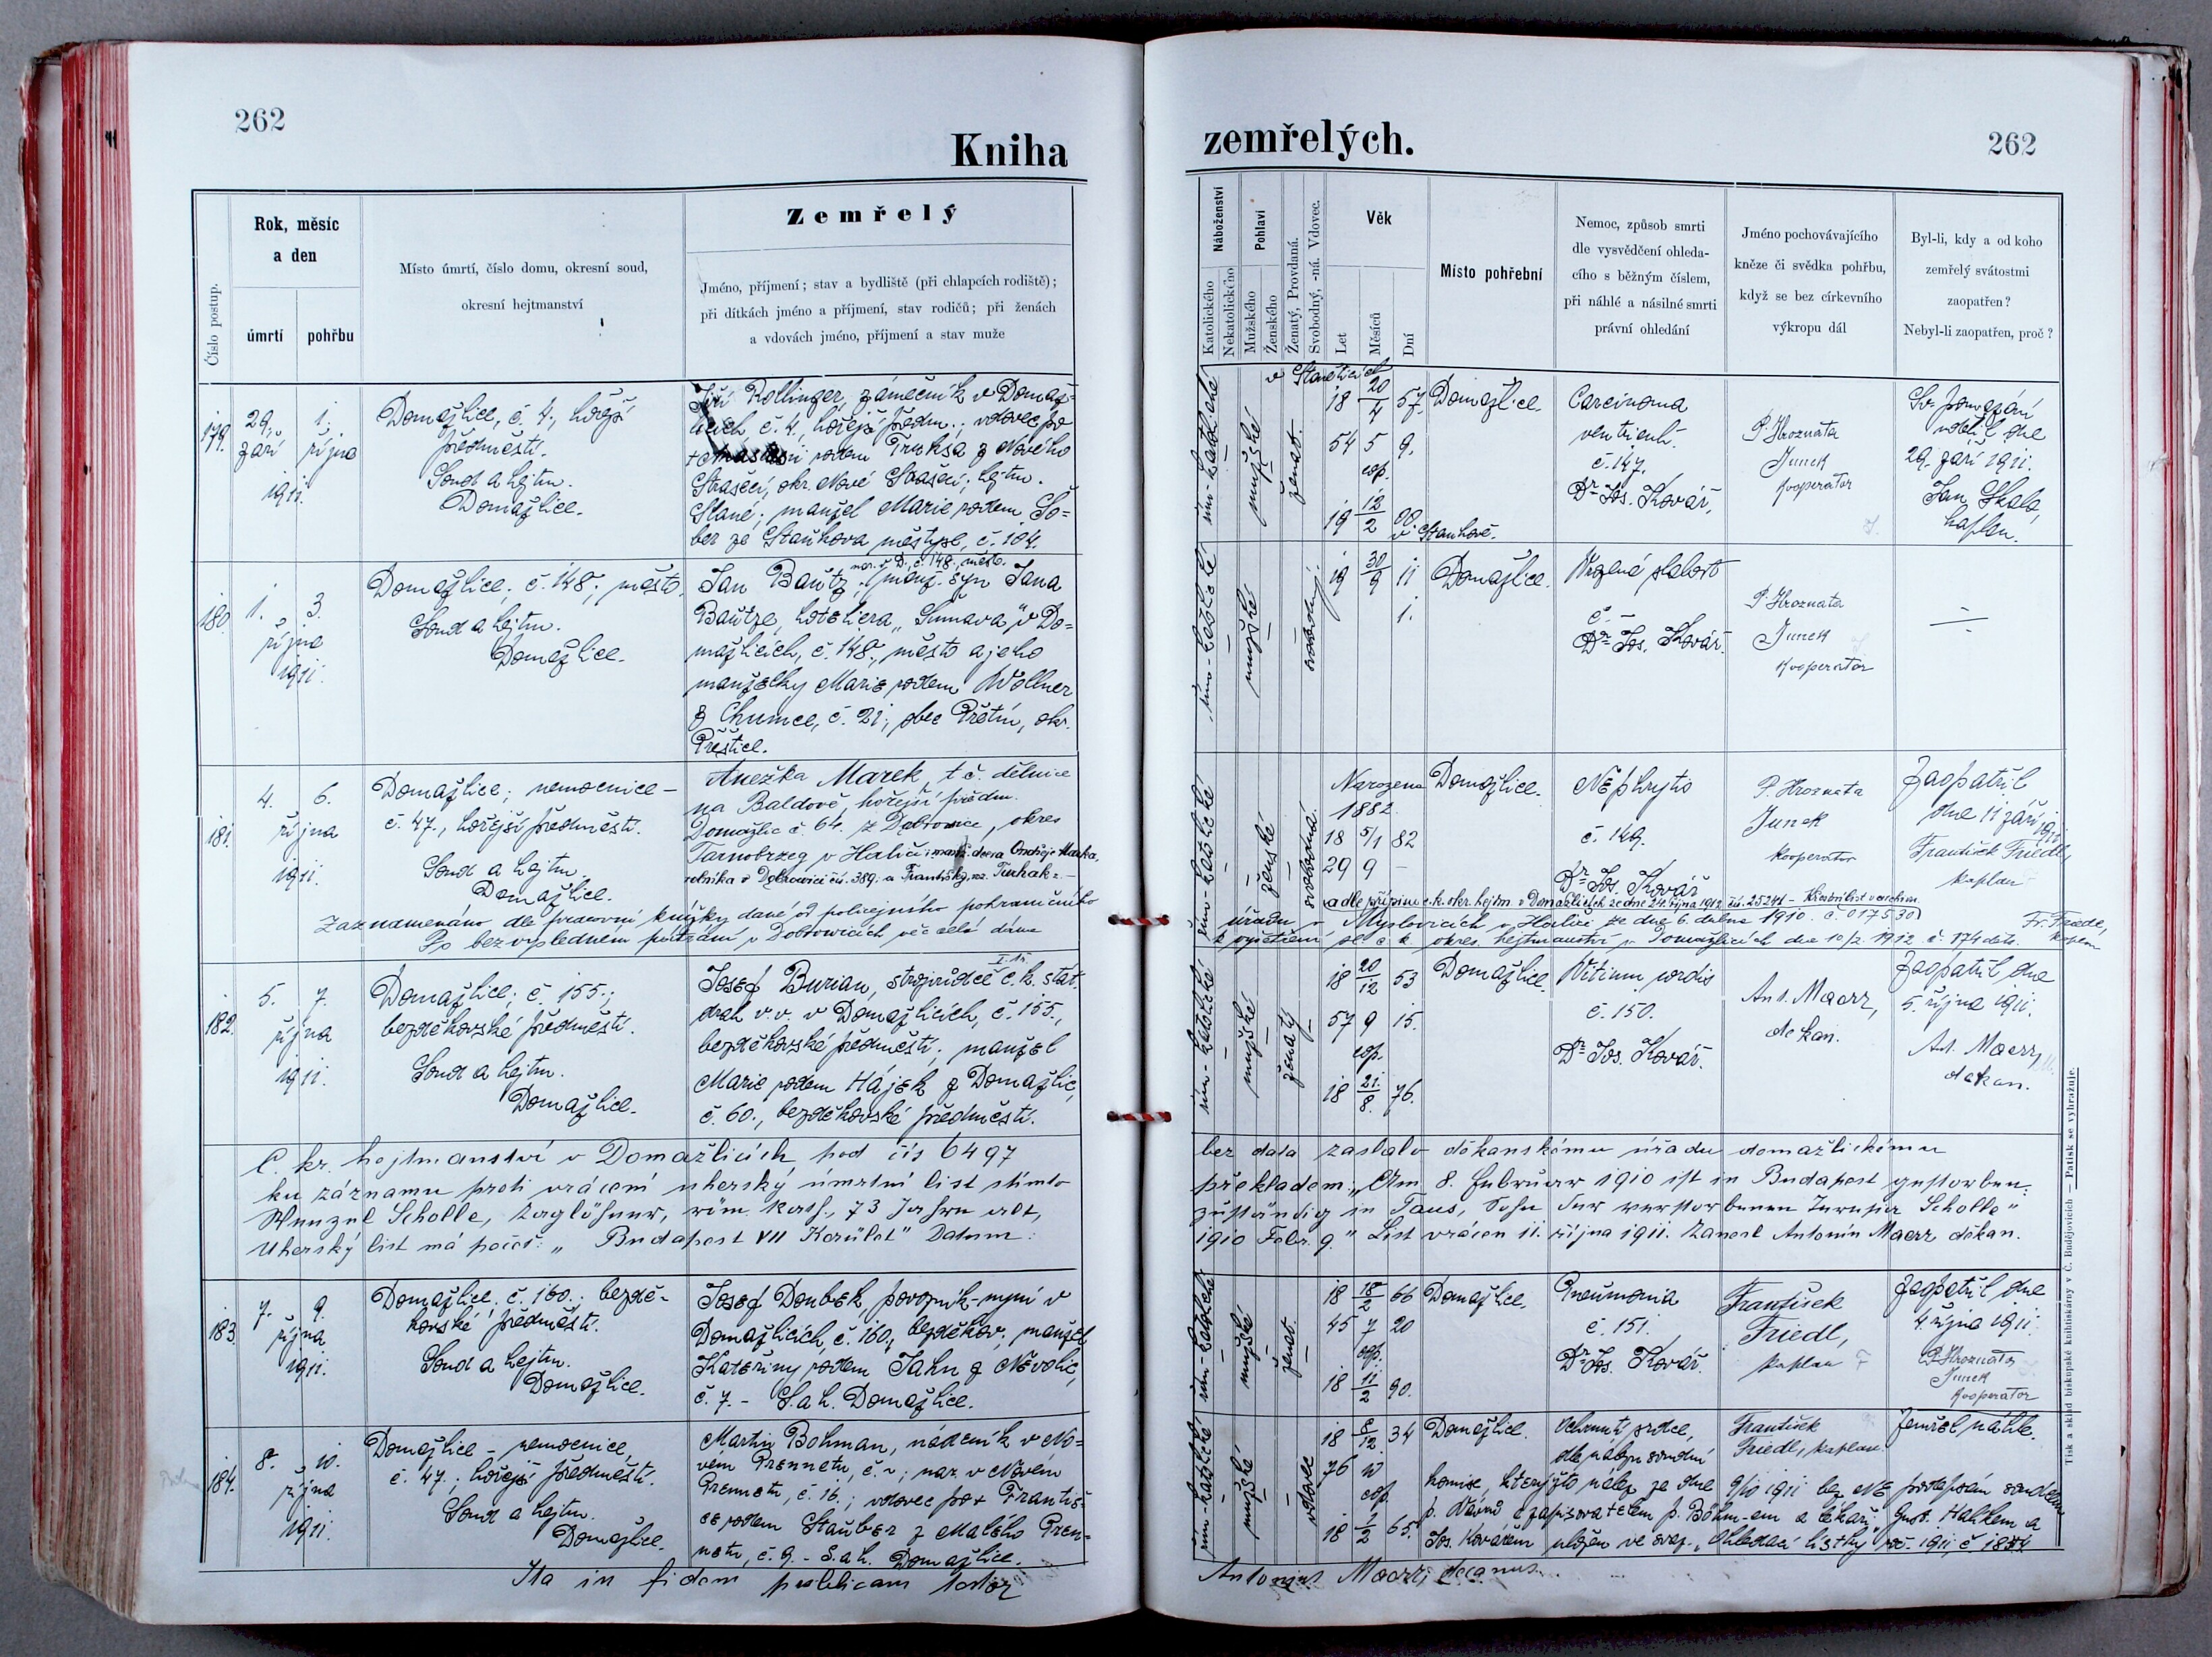 262
Kniha
zemřelých.
262
Číslo postup.
Rok, měsíc
a den
úmrtí
pohřbu
Místo úmrtí, číslo domu, okresní soud,
okresní hejtmanství
Zemřelý
Jméno, příjmení; stav a bydliště (při chlapcích rodiště);
při dítkách jméno a příjmení, stav rodičů; při ženách
a vdovách jméno, příjmení a stav muže
Náboženství
Katolického
Nekatolického
Pohlaví
Mužského
Ženského
Ženatý, Provdaná.
Svobodný, -ná. Vdovec.
Věk
Let
Měsíců
Dní
Místo pohřební
Nemoc, způsob smrti
dle vysvědčení ohleda-
cího s běžným číslem,
při náhlé a násilné smrti
právní ohledání
Jméno pochovávajícího
kněze či svědka pohřbu,
když se bez církevního
výkropu dál
Byl-li, kdy a od koho
zemřelý svátostmi
zaopatřen?
Nebyl-li zaopatřen, proč?
179.
29. 1.
září října
1911.
Domažlice, č. 4., hořejší
předměstí.
Soud a hejtm.
Domažlice.
Jiří Rollinger, zámečník v Domaž-
licích č. 4, hořejší předm.; vdovec po
rodem Truksa z Nového
Strašecí, okr. Nové Strašecí, hejtm.
Slané; manžel Marie rodem Šo-
ber ze Staňkova městyse, č. 104.
řím-katolické
mužské
ženat.
v Stanětících
18 20/4 57.
54 5 9.
cop.
19 12/2 00.
v Staňkově.
Domažlice.
Carcinoma
ventriculi.
č. 147.
Dr. Jos. Kovář.
P. Hroznata
Junek
kooperator
Sv. pomazání
udělil dne
29. září 1911.
Jan Skala,
kaplan.
180.
1. 3.
října
1911.
Domažlice; č. 148.; město.
Soud a hejtm.
Domažlice.
nar. v D., č. 148. město.
Jan Bautz, manž. syn Jana
Bautze, hoteliera "Šumava" v Do-
mažlicích, č. 148., město a jeho
manželky Marie rodem Wollner
z Chumce, č. 21., obec Přetín, okr.
Přeštice.
řím-katolické
mužské
svobodný.
19 30/9 11
1.
Domažlice.
Vrozená slabost
č. –
Dr. Jos. Kovář.
P. Hroznata
Junek
kooperator
181.
4. 6.
října
1911.
Domažlice; nemocnice –
č. 47., hořejší předměstí.
Soud a hejtm.
Domažlice.
Anežka Marek, t. č. dělnice
na Baldově, hořejší předm.
Domažlic č. 64. z Debrowice, okres
Tarnobrzeg v Haliči manž. dcera Ondřeje Marka,
rolníka v Dębrowici čís. 389. a Františky, roz. Turhak z –
řím-katolické
ženské
svobodná.
Narozena
1882.
18 5/1 82
29 9 –
Domažlice.
Nephrytis
č. 149.
Dr. Jos. Kovář
P. Hroznata
Junek
kooperator
Zaopatřil
dne 11 září 1911
František Friedl,
kaplan
(a dle přípisu c. k. okr. hejtm. v Domažlicích ze dne 24. října 1912 čís. 25241 – Křestní list v archivu.
Zaznamenáno dle pracovní knížky dané od policejního pohraničního
úřadu v Myslovicích v Haliči ze dne 6. dubna 1910. č. 017530)
Po bezvýsledném pátrání v Dobrowicích věc celá dána
k vyšetření se c. k. okres. hejtmanství v Domažlicích dne 10/2. 1912. č. 174 dět.
Fr. Friedl,
kaplan
182.
5. 7.
října
1911.
Domažlice; č. 155.;
bezděkovské předměstí.
Soud a hejtm.
Domažlice.
Josef Burian, strojvůdce c. k. stát.
drah v. v. v Domažlicích, č. 155.,
bezděkovské předměstí; manžel
Marie rodem Hájek z Domažlic,
č. 60., bezděkovské předměstí.
řím-katolické
mužské
ženatý
18 20/12 53
57 9 15.
cop.
18 21/8. 76.
Domažlice.
Vitium cordis
č. 150.
Dr. Jos. Kovář.
Ant. Maerz,
děkan.
Zaopatřil dne
5. října 1911.
Ant. Maerz,
děkan.
C. kr. hejtmanství v Domažlicích pod čís 6497
bez data zaslalo děkanskému úřadu domažlickému
ku záznamu proti vrácení uherský úmrtní list s tímto
překladem: "Am 8. Februar 1910 ist in Budapest gestorben:
Wenzel Scholle, Taglöhner, röm. kath., 73 Jahre alt,
zuständig in Taus, Sohn der verstorbenen Scholle"
Uherský list má pečeť: "Budapest VII Kerület" Datum:
1910 Febr. 9." List vrácen 11. října 1911. Zanesl Antonín Maerz děkan.
183.
7. 9.
října
1911.
Domažlice, č. 160.; bezdě-
kovské předměstí.
Soud a hejtm.
Domažlice.
Josef Doubek, povozník nyní v
Domažlicích, č. 160, bezděkov.; manžel
Kateřiny rodem Jahn z Nevolic,
č. 7. – S. a h. Domažlice.
řím-katolické
mužské
ženat.
18 18/2 66
45 7 20
cop.
18 11/2 90.
Domažlice.
Pneumonia
č. 151.
Dr. Jos. Kovář.
František
Friedl,
kaplan
Zaopatřil dne
4. října 1911.
P. Hroznata
Junek
kooperator
184.
8. 10.
října
1911.
Domažlice – nemocnice,
č. 47.; hořejší předměstí.
Soud a hejtm.
Domažlice.
Martin Bohman, nádeník v No-
vém Prennetu, č. –; nar. v Novém
Prennetu, č. 16.; vdovec po + Františ-
ce rodem Stauber z Malého Pren-
netu, č. 9. – S. a h. Domažlice.
řím-katolické
mužské
vdovec
18 8/12 34
76 10
cop.
18 1/2 65.
Domažlice.
Ochrnutí srdce,
dle nálezu soudní
František
Friedl, kaplan.
Zemřel náhle.
komise, kterýžto nález ze dne 9/10 1911 bez No podepsán soudcem
p. Návrd a zapisovatelem p. Böhm-em a lékaři: Gust. Hahlem a
Jos. Kovářem uložen ve svaz. "Ohledací lístky roč. 1911, č. 184.
Ita in fidem publicam testor
Antonius Maerz, decanus.
Tisk a sklad biskupské knihtiskárny v Č. Budějovicích — Patisk se vyhražuje.